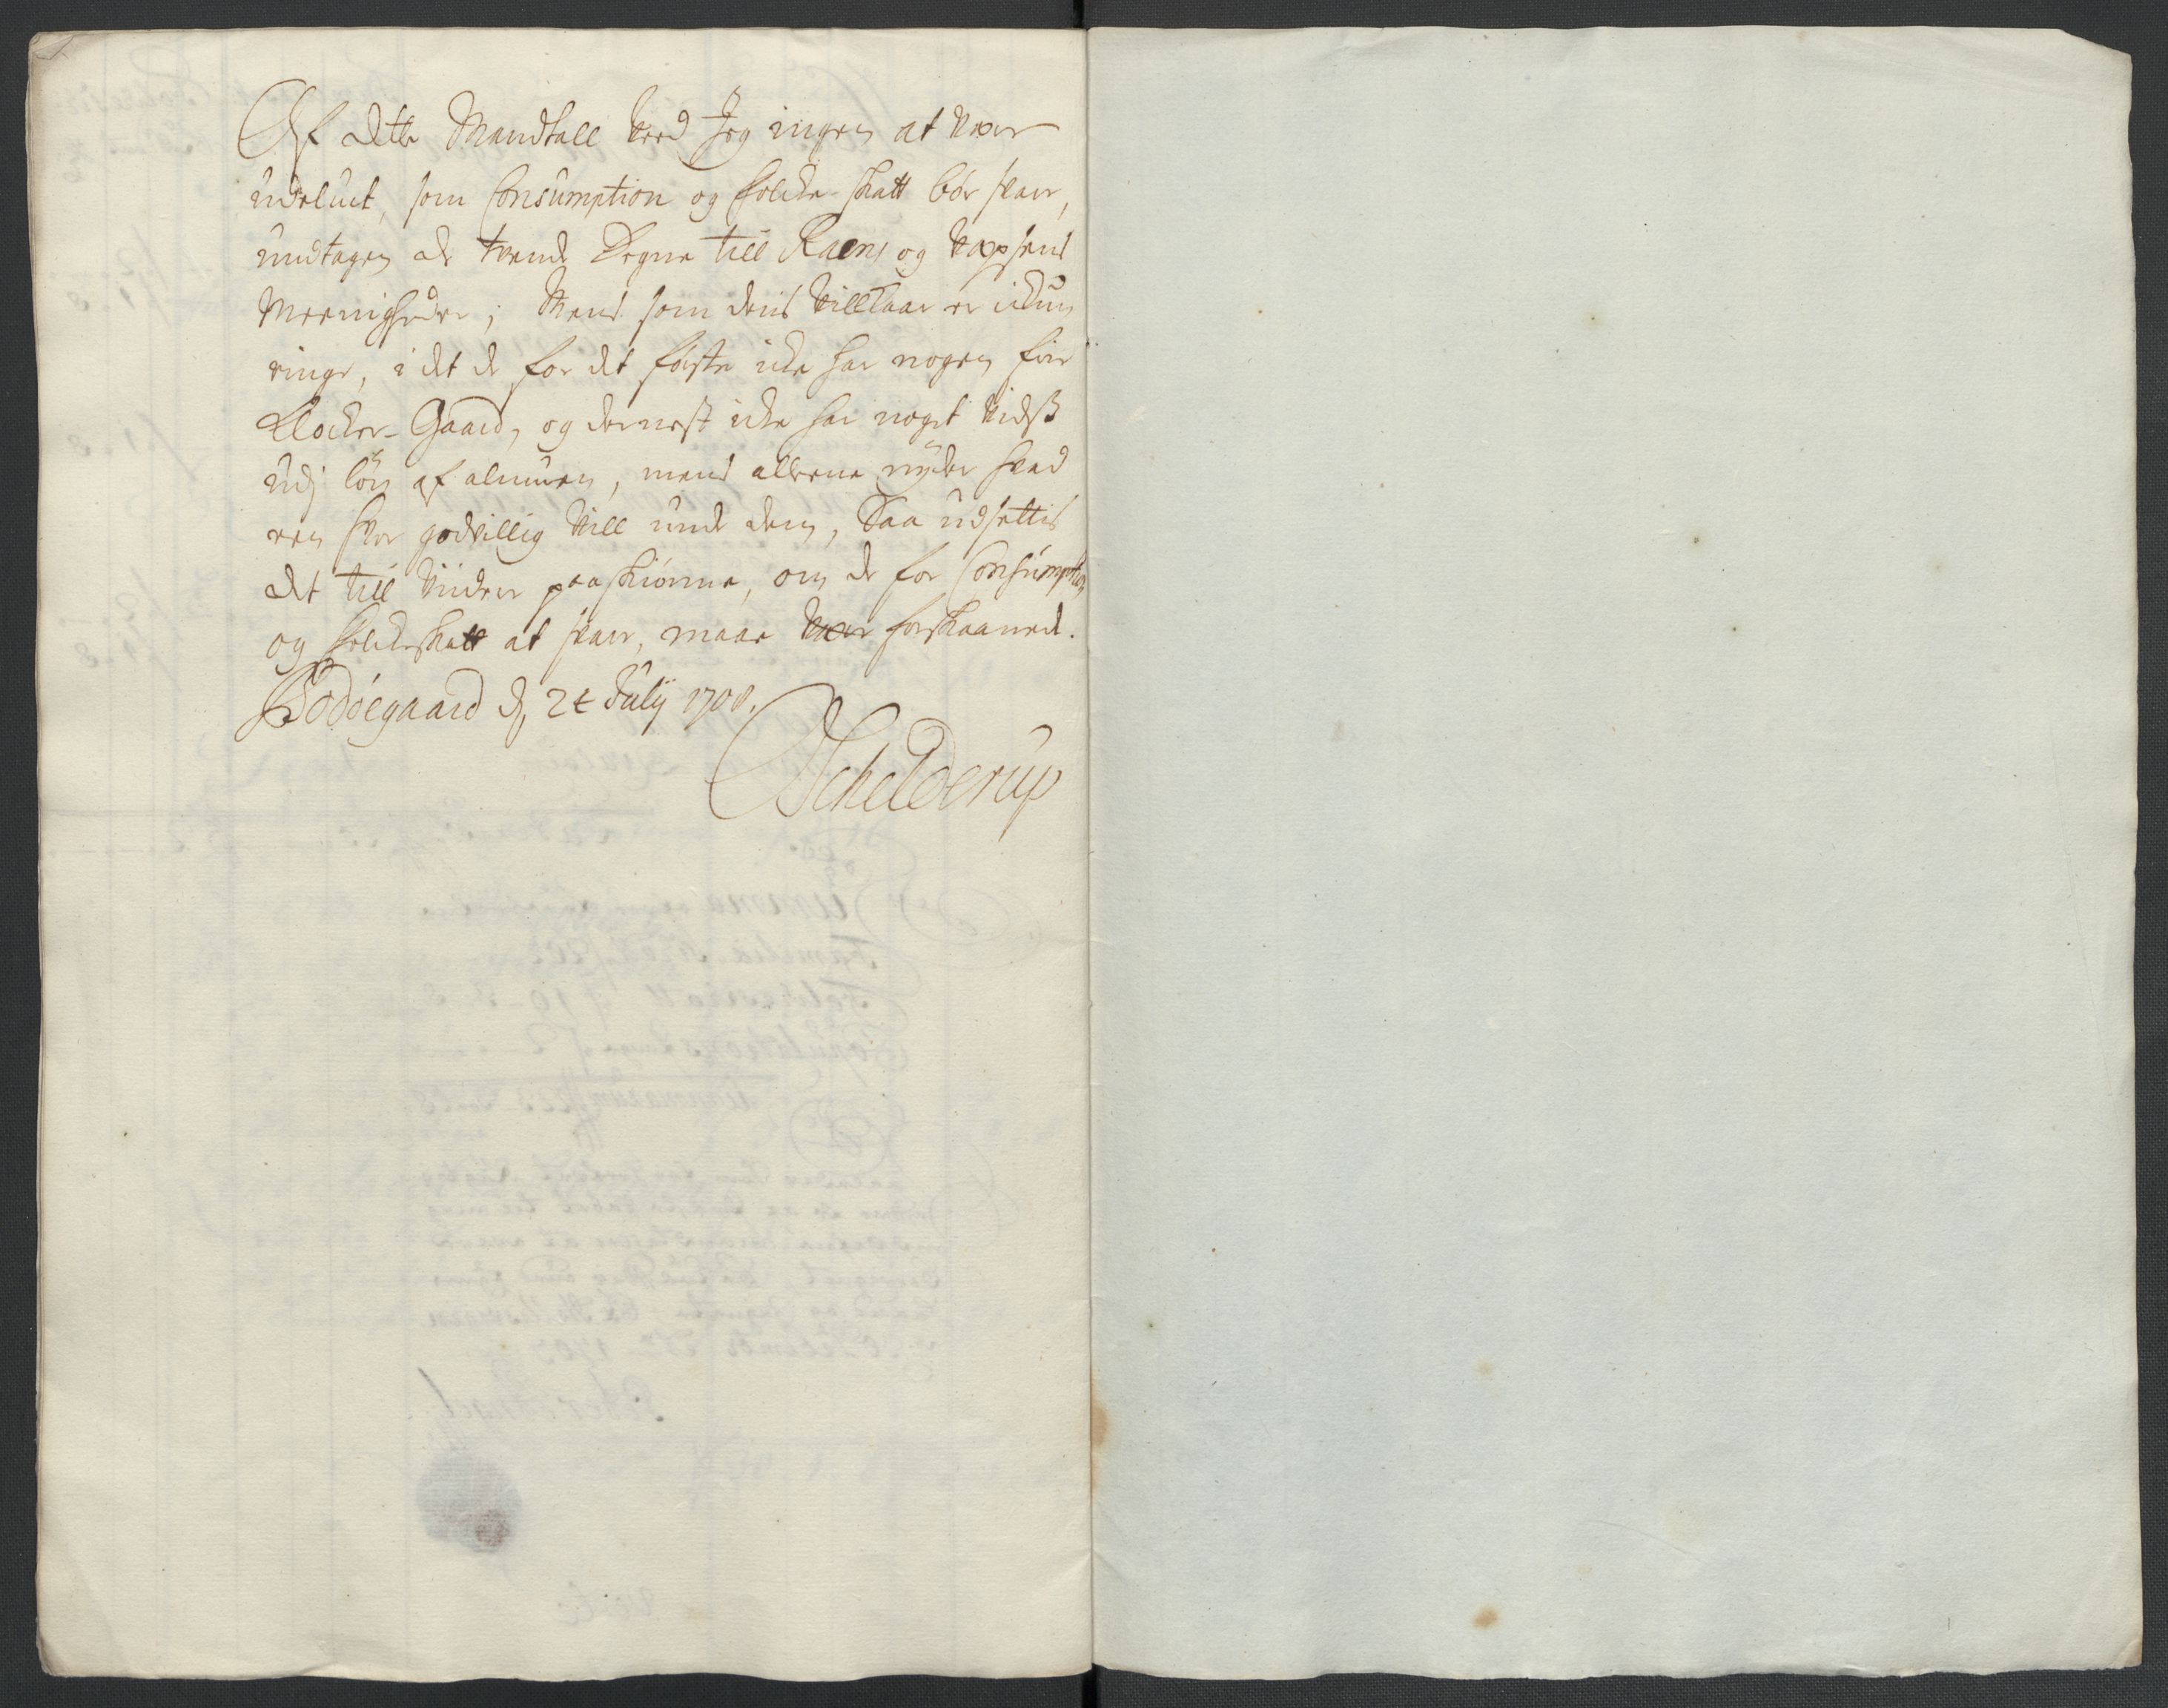 Af dette Mandtall veed Jeg ingen at være
udeluct, som Consumption og folcke-skatt bør svare,
undtagen de tvende Degne till Raens og Vapsens
Meenigheder; Mens som deris Villkaar er ickun
ringe, i det de for det første icke har nogen frie
Klocker-Gaard, og dernest icke har noget vidst
udj løn af almuen, mens alleene nyder hvad
een hver godvillig vill unde dem, Saa udsettis
det till viidere paaskiønne, om de for Consumption
og folckeskatt at svare, maae være forskaaned.
Bodøegaard d, 24 Julij 1708.
Schelderup